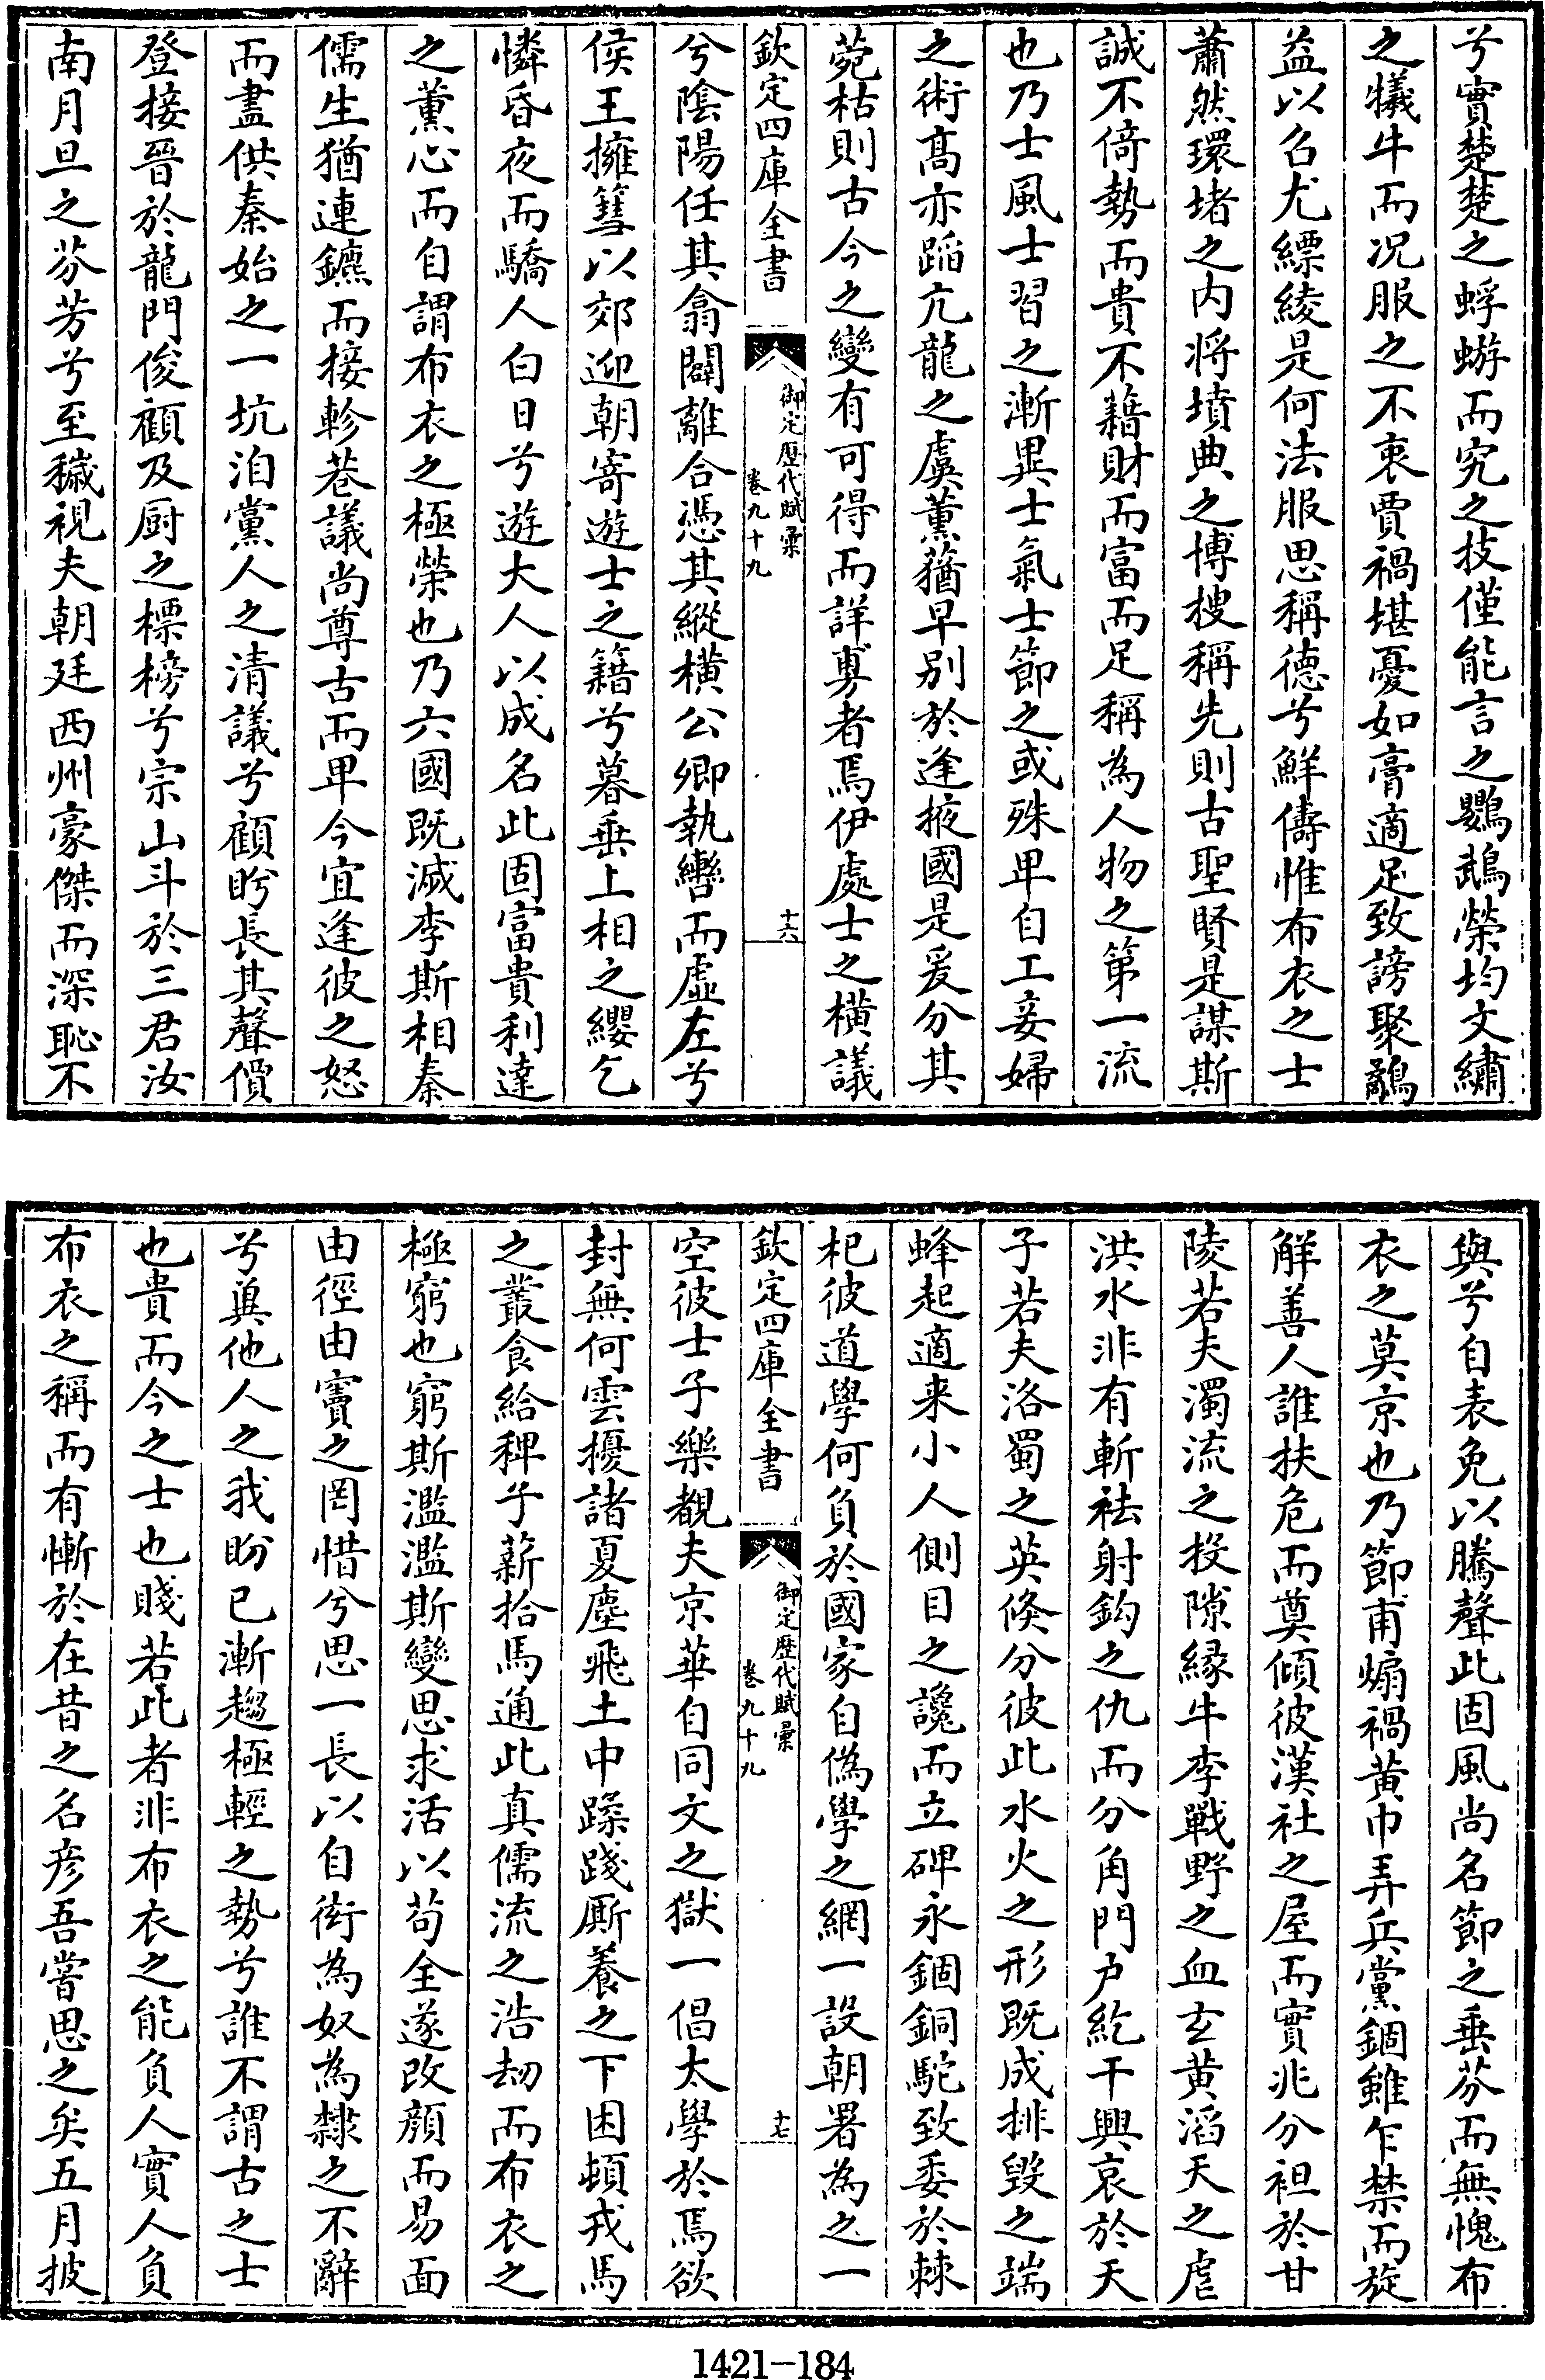 兮實楚楚之蜉蝣而究之技僅能言之鸚鵡榮均文繡
之犧牛而况服之不衷賈禍堪憂如膏適足致謗聚鷸
益以名尤縹綾是何法服思稱德兮鮮儔惟布衣之士
蕭然環堵之内将墳典之博搜稱先則古聖賢是謀斯
誠不倚勢而貴不籍財而富而足稱為人物之第一流
也乃士風士習之漸異士氣士節之或殊卑自工妾婦
之術髙亦蹈亢龍之虞薰蕕早别於逢掖國是爰分其
菀枯則古今之變有可得而詳尃者焉伊處士之横議
欽定四庫全書
御定歴代賦彙
卷九十九
十六
兮陰陽任其翕闢離合憑其縱橫公卿執轡而虛左兮
侯王擁篲以郊迎朝寄遊士之籍兮暮垂上相之纓乞
憐昏夜而驕人白日兮遊大人以成名此固富貴利達
之薰心而自謂布衣之極榮也乃六國既滅李斯相秦
儒生猶連鑣而接軫巷議尚尊古而卑今宜逢彼之怒
而盡供秦始之一坑洎黨人之清議兮顧盻長其聲價
登接晉於龍門俊顧及厨之標榜兮宗山斗於三君汝
南月旦之芬芳兮至穢視夫朝廷西州豪傑而深恥不
與兮自表免以騰聲此固風尚名節之垂芬而無愧布
衣之莫京也乃節甫煽禍黄巾弄兵黨錮雖乍禁而旋
解善人誰扶危而奠傾彼漢社之屋而實兆分袒於甘
陵若夫濁流之投隙縁牛李戰野之血玄黄滔天之虐
洪水非有斬祛射鈎之仇而分角門户紇干興哀於天
子若夫洛蜀之英倏分彼此水火之形既成排毁之端
蜂起適来小人側目之讒而立碑永錮銅駝致委於棘
杞彼道學何負於國家自偽學之網一設朝署為之一
欽定四庫全書
御定歴代賦彙
卷九十九
十七
空彼士子樂覩夫京華自同文之獄一倡太學於焉欲
封無何雲擾諸夏塵飛土中蹂踐厮養之下困頓戎馬
之叢食給稗子薪拾馬通此真儒流之浩刼而布衣之
極窮也窮斯濫濫斯變思求活以苟全遂改顔而易面
由徑由竇之罔惜兮思一長以自衒為奴為隸之不辭
兮兾他人之我盼已漸趨極輕之勢兮誰不謂古之士
也貴而今之士也賤若此者非布衣之能負人實人負
布衣之稱而有慚於在昔之名彦吾嘗思之矣五月披
1421-184